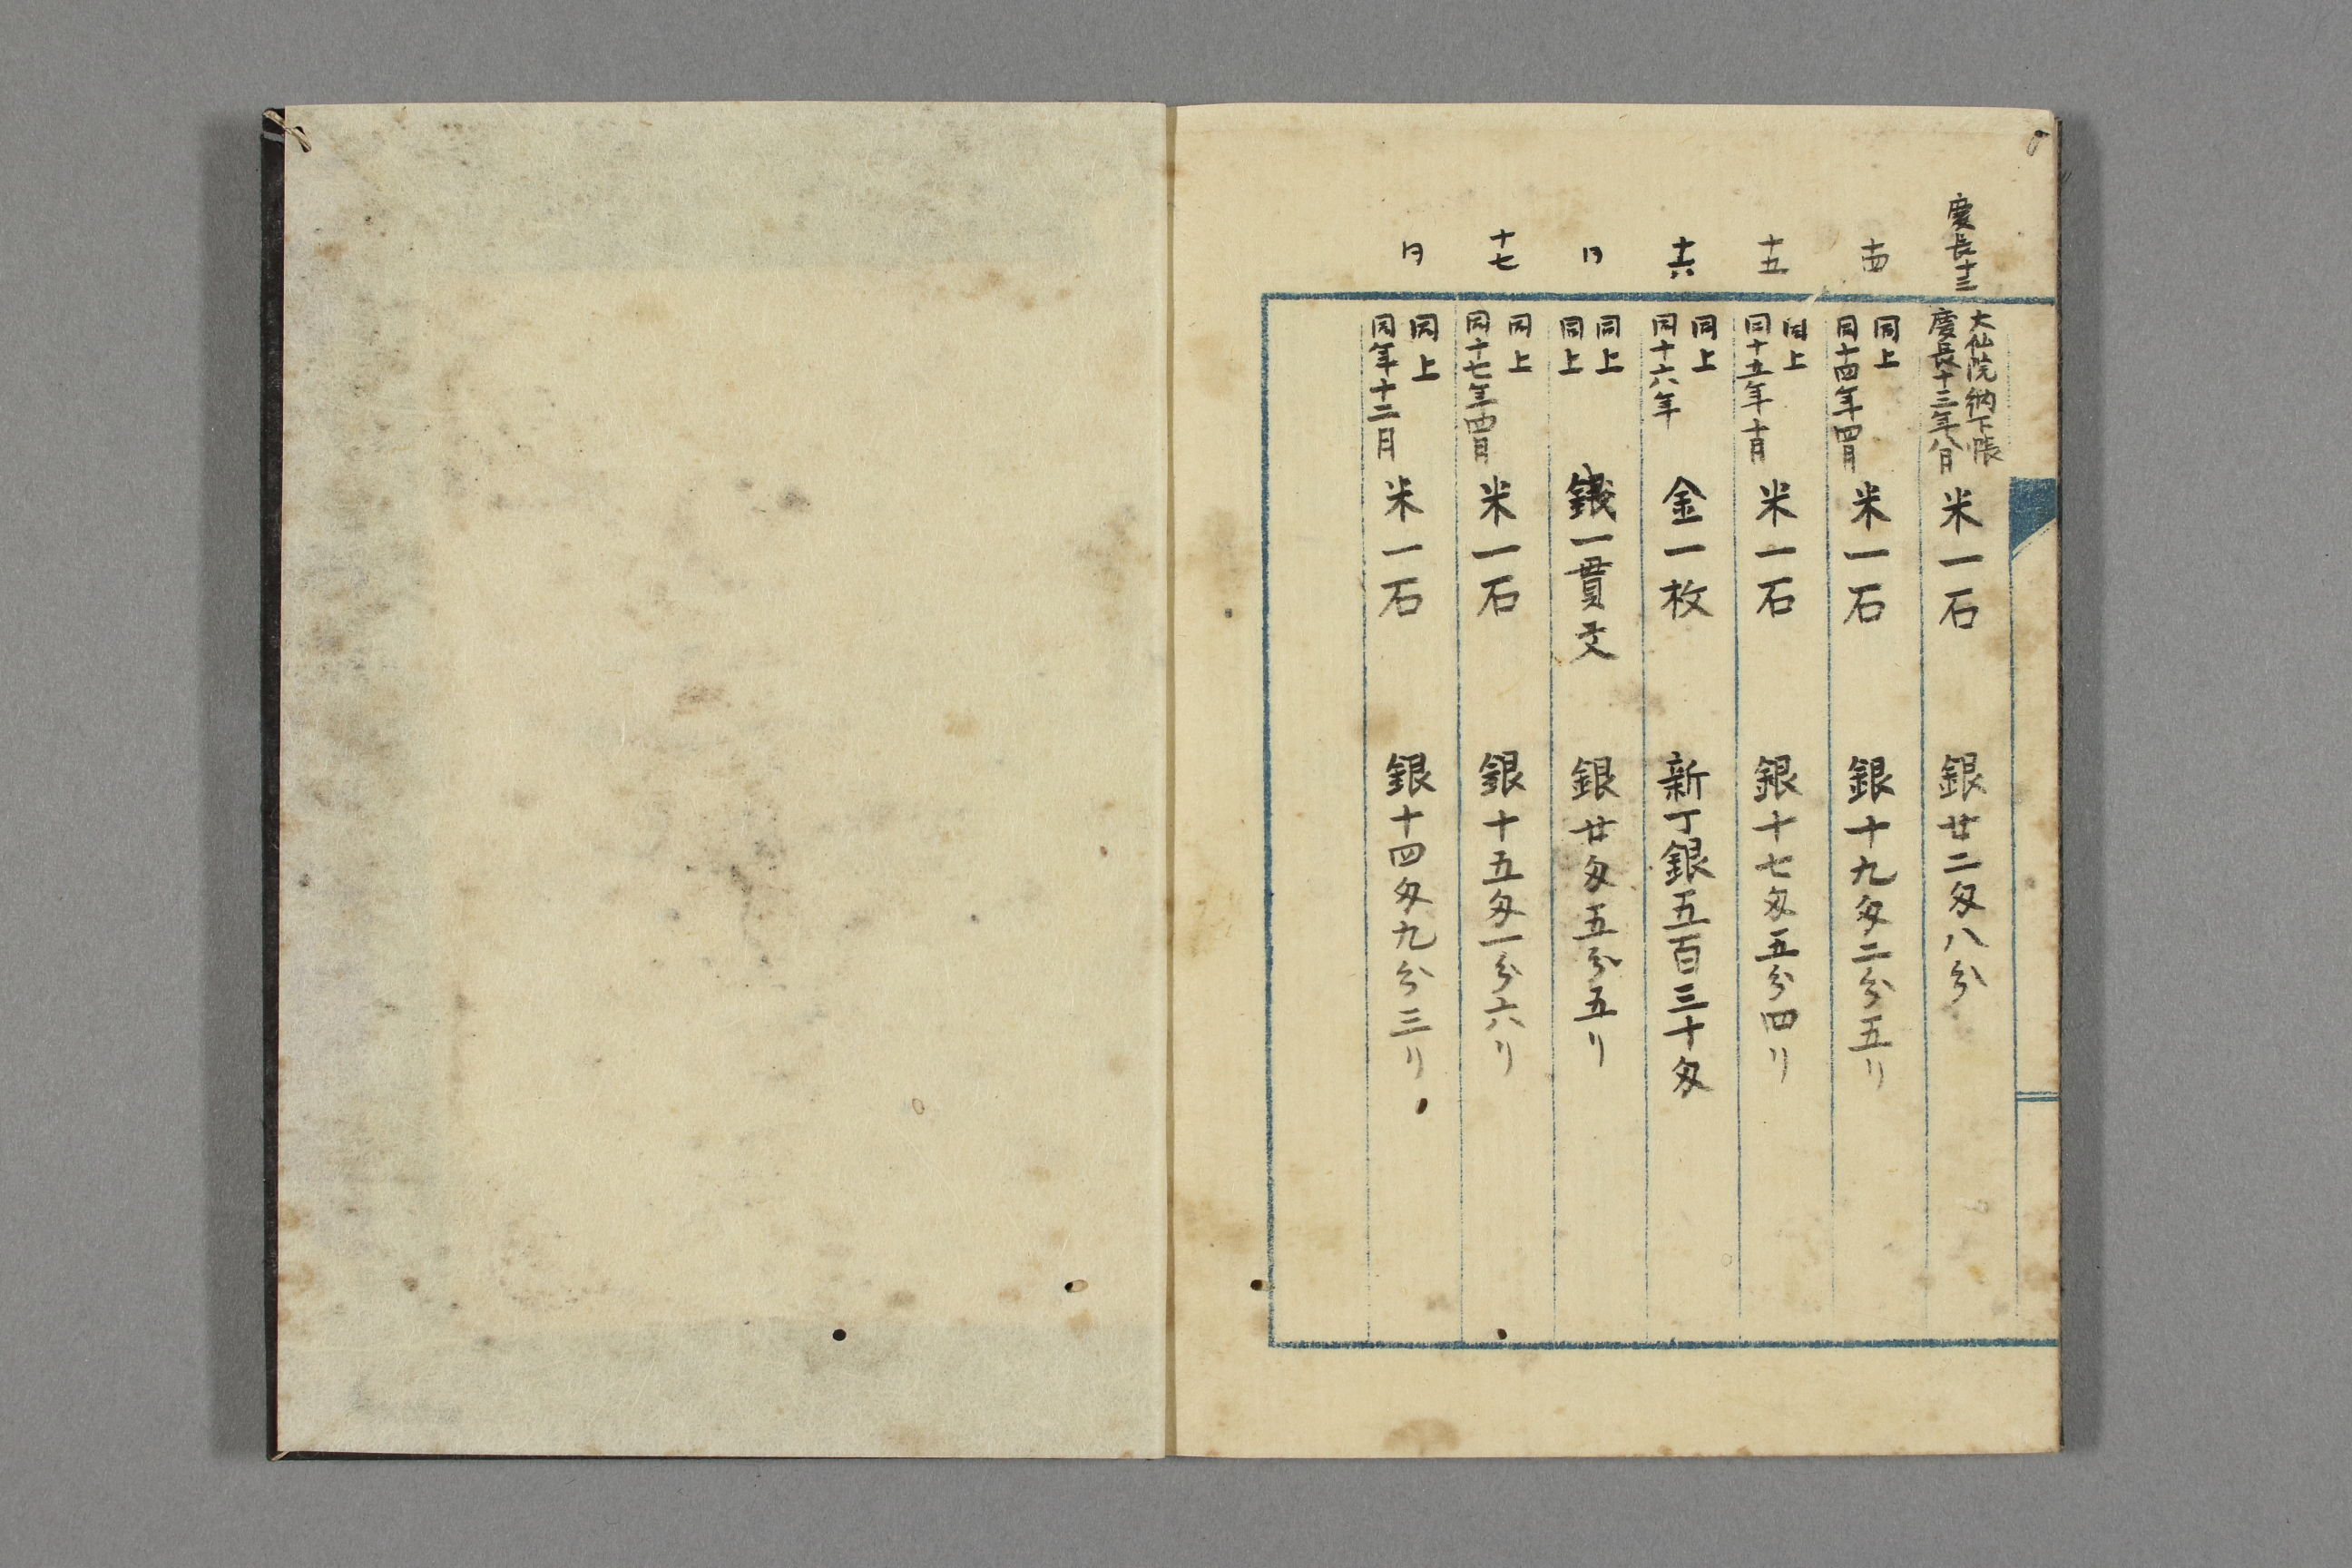 慶長十三
大仙院納下帳
慶長十三年八月
米一石
銀廿二匁八分
十四
同上
同十四年四月
米一石
銀十九匁二分五リ
十五
同上
同十五年十月
米一石
銀十七匁五分四リ
十六
同上
同十六年
金一枚
新丁銀五百三十匁
同
同上
同上
銭一貫文
銀廿匁五分五リ
十七
同上
同十七年四月
米一石
銀十五匁一分六リ
同
同上
同年十二月
米一石
銀十四匁九分三リ